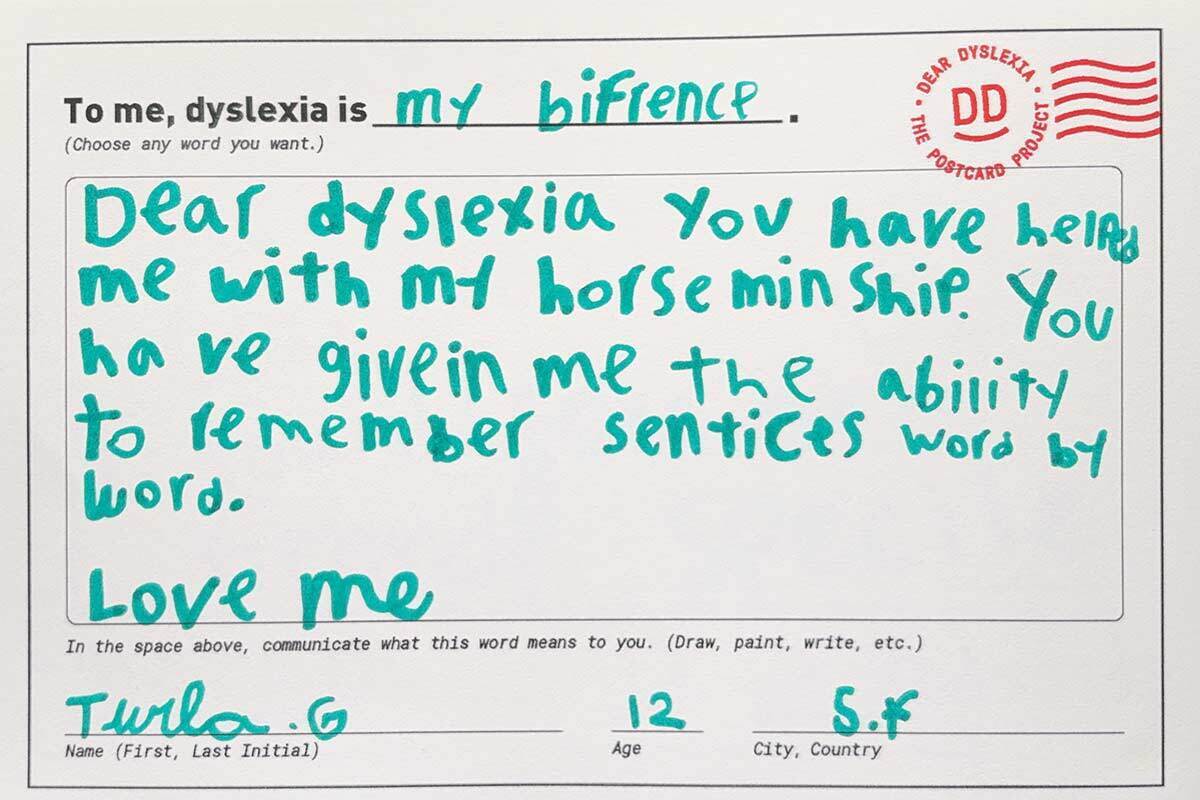 To me, dyslexia is my bifrence.
(Choose any word you want.)
DEAR DYSLEXIA · THE POSTCARD PROJECT ·
DD
Dear dyslexia You have helped
me with my horse min ship. You
ha ve givein me the ability
to remember sentices word by
word.
Love me
In the space above, communicate what this word means to you. (Draw, paint, write, etc.)
Twila.G
12
S.F
Name (First, Last Initial)
Age
City, Country